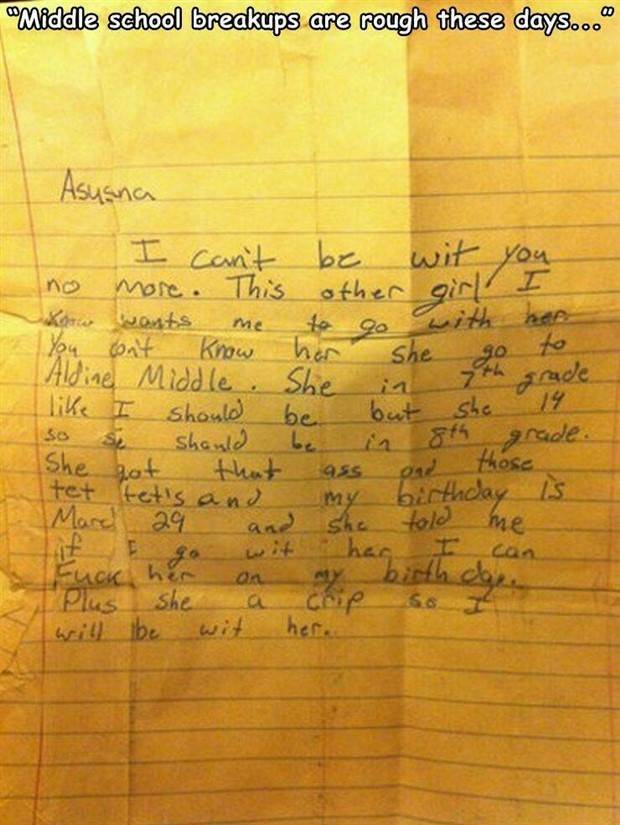 "Middle school breakups are rough these days..."
Asusana
I can't be wit you
no more. This other girl I
Know wants me to go with her
You don't Know her she go to
Aldine Middle. She in 7th grade
like I should be but she 14
so se should be in 8th grade.
[omitted]
[omitted] and my birthday is
Marc 29 and she told me
if I go wit her [omitted]
[omitted]
Plus she a crip so I
will be wit her.